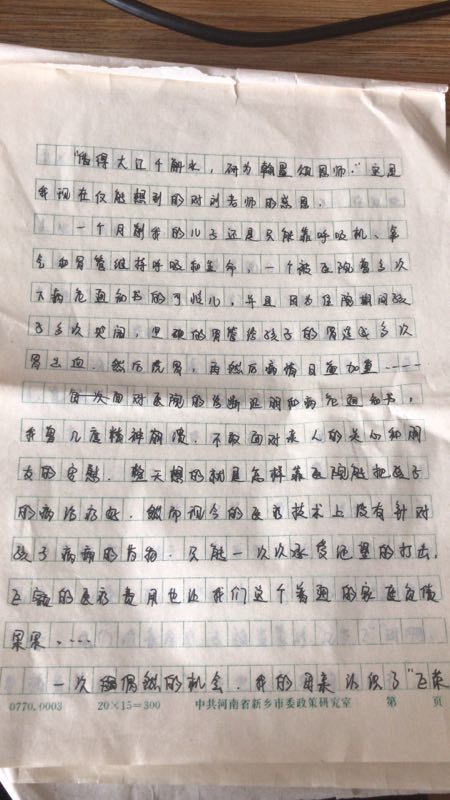 "借得大江千斛水，研为翰墨颂恩师."这是
我现在仅能想到的对刘老师的感恩.
一个月前我的儿子还是只能靠呼吸机、氧
气和胃管维持呼吸和生命，一个被医院多次
下病危通知书的可怜儿，并且因为住院期间孩
子多次哭闹，坚硬的胃管给孩子的胃造成多次
胃出血.然后洗胃，再然后病情日益加重....
每次面对医院的诊断证明和病危通知书，
我曾几度精神崩溃.不敢面对家人的关心和朋
友的安慰.整天想的就是怎样靠医院能把孩子
的病治疗好.然而现今的医疗技术上没有针对
孩子病病的药物.只能一次次承受绝望的打击.
巨额的医疗费用也让我们这个普通的家庭负债
累累....
一次偶然的机会.我的母亲认识了"
0770.0003 20×15=300 中共河南省新乡市委政策研究室 第 页